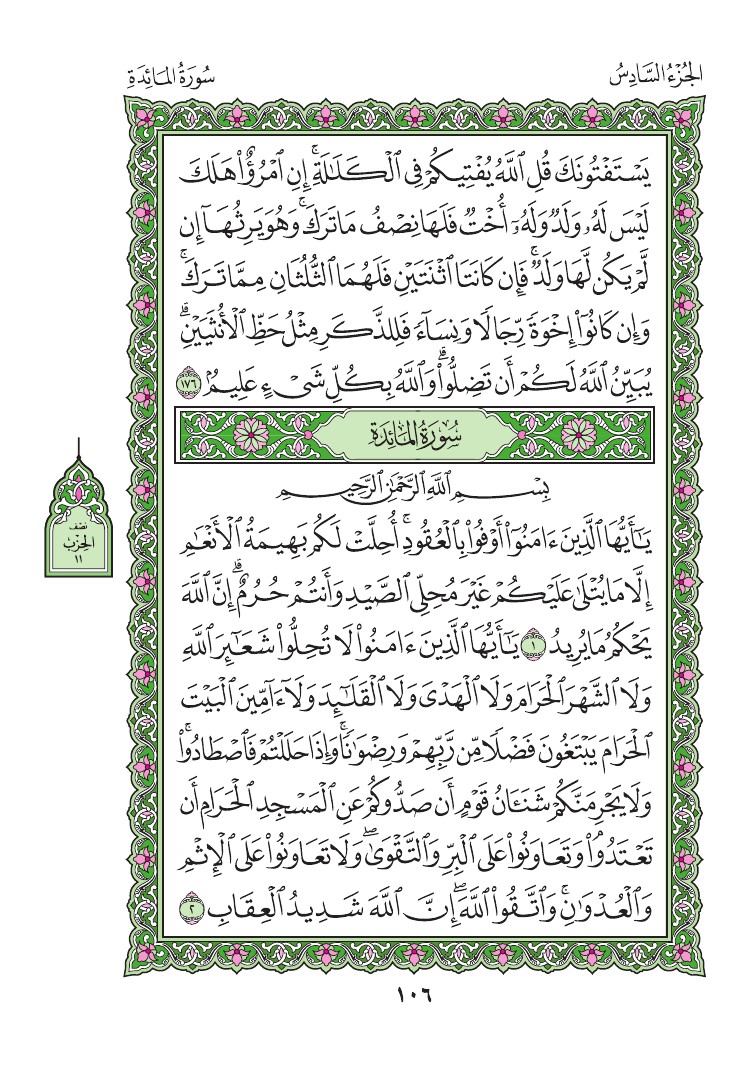 الجُزْءُ السَّادِسُ
سُورَةُ المَائِدَةِ
يَسْتَفْتُونَكَ قُلِ ٱللَّهُ يُفْتِيكُمْ فِي ٱلْكَلَٰلَةِۚ إِنِ ٱمْرُؤٌا۟ هَلَكَ
لَيْسَ لَهُۥ وَلَدٌ وَلَهُۥٓ أُخْتٌ فَلَهَا نِصْفُ مَا تَرَكَۚ وَهُوَ يَرِثُهَآ إِن
لَّمْ يَكُن لَّهَا وَلَدٌۚ فَإِن كَانَتَا ٱثْنَتَيْنِ فَلَهُمَا ٱلثُّلُثَانِ مِمَّا تَرَكَۚ
وَإِن كَانُوٓا۟ إِخْوَةً رِّجَالًا وَنِسَآءً فَلِلذَّكَرِ مِثْلُ حَظِّ ٱلْأُنثَيَيْنِۗ
يُبَيِّنُ ٱللَّهُ لَكُمْ أَن تَضِلُّوا۟ۗ وَٱللَّهُ بِكُلِّ شَىْءٍ عَلِيمٌۢ ١٧٦
سُورَةُ المَائِدَةِ
بِسْمِ ٱللَّهِ ٱلرَّحْمَٰنِ ٱلرَّحِيمِ
يَٰٓأَيُّهَا ٱلَّذِينَ ءَامَنُوٓا۟ أَوْفُوا۟ بِٱلْعُقُودِۚ أُحِلَّتْ لَكُم بَهِيمَةُ ٱلْأَنْعَٰمِ
إِلَّا مَا يُتْلَىٰ عَلَيْكُمْ غَيْرَ مُحِلِّى ٱلصَّيْدِ وَأَنتُمْ حُرُمٌۗ إِنَّ ٱللَّهَ
يَحْكُمُ مَا يُرِيدُ ١ يَٰٓأَيُّهَا ٱلَّذِينَ ءَامَنُوا۟ لَا تُحِلُّوا۟ شَعَٰٓئِرَ ٱللَّهِ
وَلَا ٱلشَّهْرَ ٱلْحَرَامَ وَلَا ٱلْهَدْىَ وَلَا ٱلْقَلَٰٓئِدَ وَلَآ ءَآمِّينَ ٱلْبَيْتَ
ٱلْحَرَامَ يَبْتَغُونَ فَضْلًا مِّن رَّبِّهِمْ وَرِضْوَٰنًاۚ وَإِذَا حَلَلْتُمْ فَٱصْطَادُوا۟ۚ
وَلَا يَجْرِمَنَّكُمْ شَنَـَٔانُ قَوْمٍ أَن صَدُّوكُمْ عَنِ ٱلْمَسْجِدِ ٱلْحَرَامِ أَن
تَعْتَدُوا۟ۘ وَتَعَاوَنُوا۟ عَلَى ٱلْبِرِّ وَٱلتَّقْوَىٰۖ وَلَا تَعَاوَنُوا۟ عَلَى ٱلْإِثْمِ
وَٱلْعُدْوَٰنِۚ وَٱتَّقُوا۟ ٱللَّهَۖ إِنَّ ٱللَّهَ شَدِيدُ ٱلْعِقَابِ ٢
نصف
الحزب
١١
١٠٦